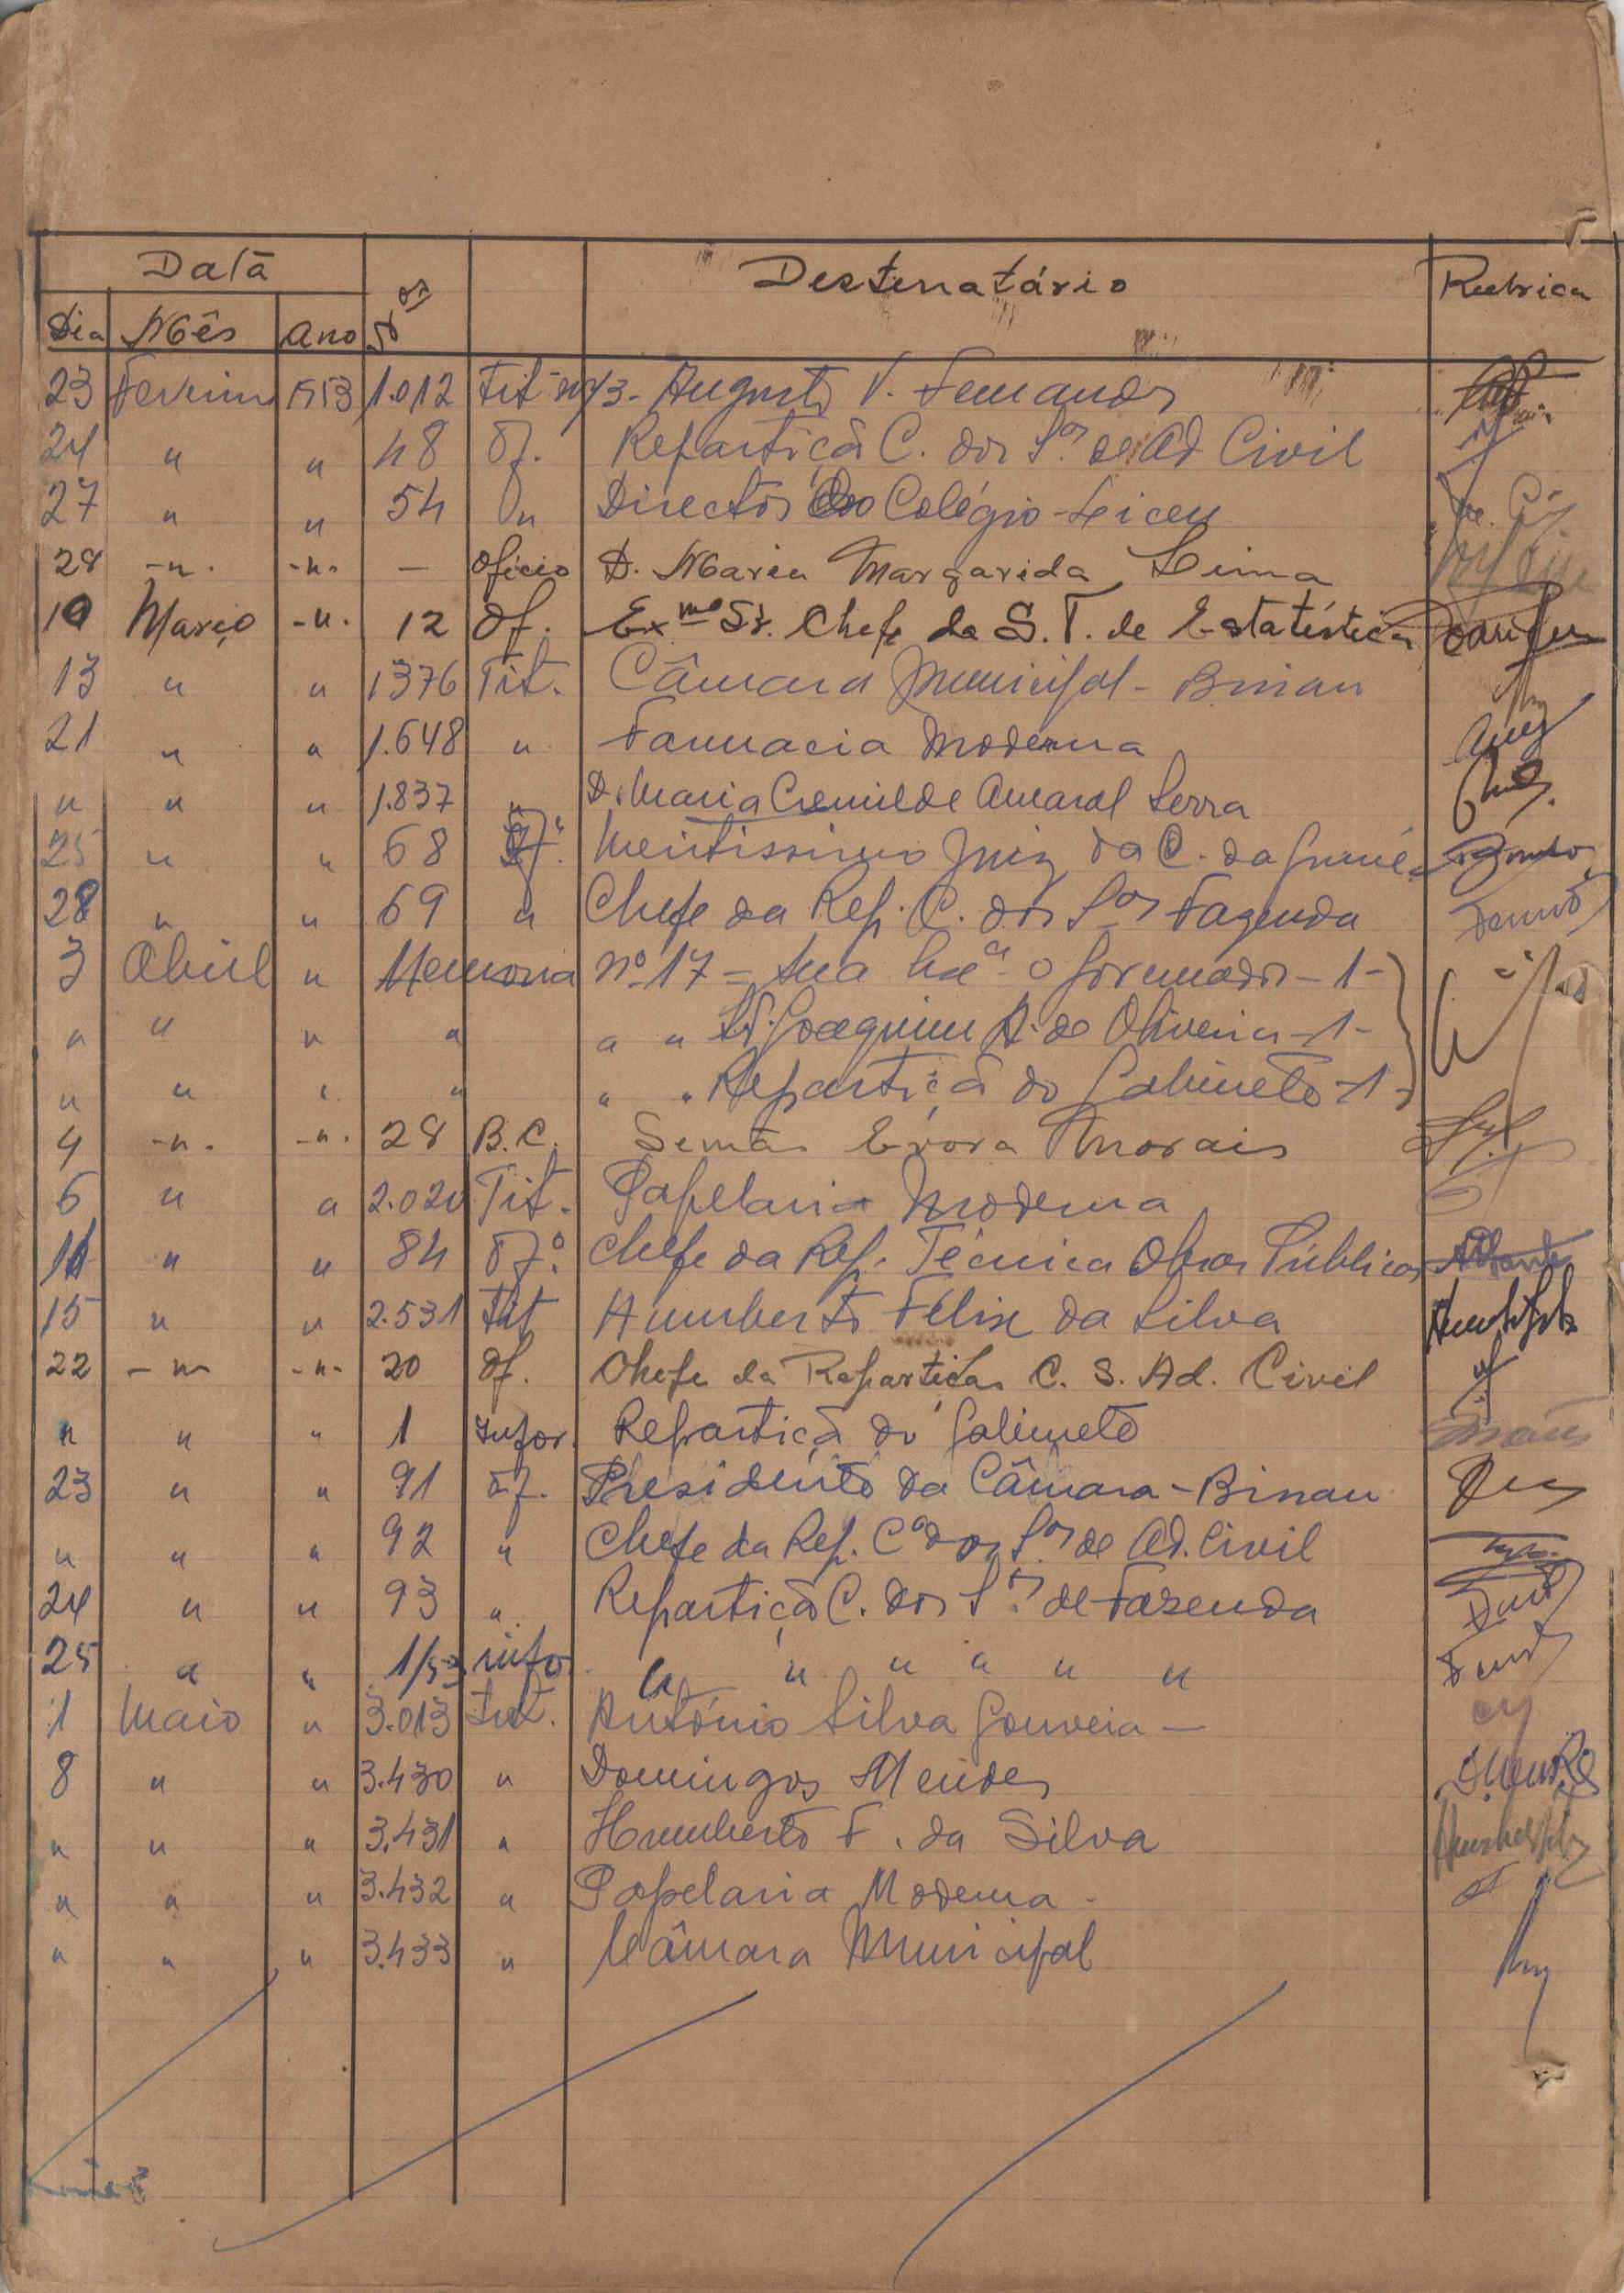 Data Nos Destinatário Rubrica
Dia Mês Ano
23 Fevereiro 1953 1.012 Tit Augusto V. Fernandes
24 " " 48 Of. Repartição C. dos S.os de Ad Civil
27 " " 54 " Director do Colégio-Liceu
28 -"- -"- — Oficio D. Maria Margarida Lima
10 Março -"- 12 Of. Exmo Sr. Chefe da S. T. de Estatística
13 " " 1376 Tit. Câmara Municipal - Bissau
21 " " 1.648 " Farmacia Moderna
" " " 1.837 " D. Maria Cremilde Amaral Serra
25 " " 68 Of. Meritissimo Juiz da C. da Guiné
28 " " 69 " Chefe da Rep. C. dos S.os Fazenda
3 Abril " Memoria nº 17 = Sua Exª o Governador - 1 -
" " " " " " Sr. Joaquim A. de Oliveira - 1 -
" " " " " " Repartição do Gabinete - 1 -
4 -"- -"- 28 B.C. Evora Morais
6 " " 2.020 Tit. Papelaria Moderna
11 " " 84 Of.º Chefe da Rep. Técnica Obras Públicas
15 " " 2.531 Tit Humberto Félix da Silva
22 -"- -"- 20 Of. Chefe da Repartição C. S. Ad. Civil
" " " 1 Infor. Repartição do Gabinete
23 " " 91 Of. Presidente da Câmara - Bissau
" " " 92 " Chefe da Rep. Cal dos S.os de Ad. Civil
24 " " 93 " Repartição C. dos S.os de Fazenda
25 " " 1/53 info " " " " " "
1 Maio " 3.013 Tit. António Silva Gouveia -
8 " " 3.430 " Domingos Mendes
" " " 3.431 " Humberto F. da Silva
" " " 3.432 " Papelaria Moderna -
" " " 3.433 " Câmara Municipal